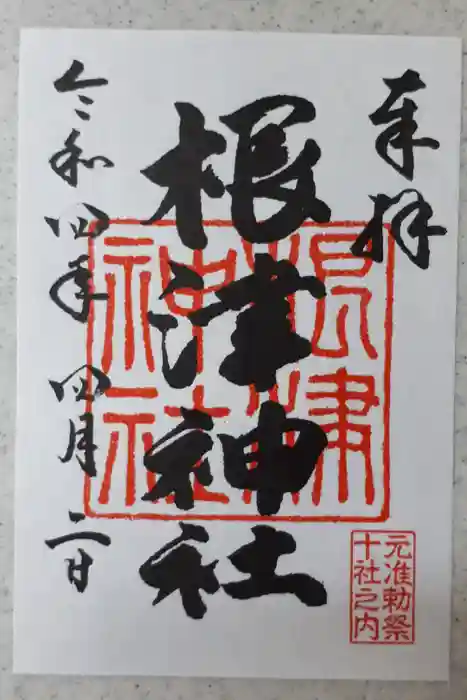 奉拝
根津神社
令和四年四月二日
根津神社
元准勅祭
十社之内